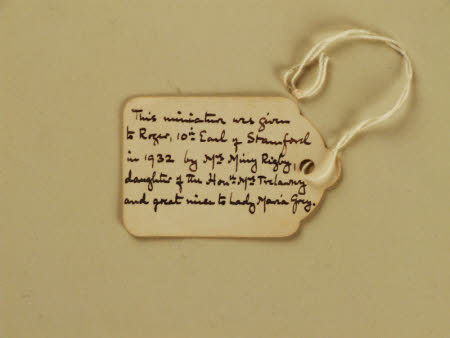 This miniature was given
to Roger, 10th Earl of Stamford
in 1932 by Mrs Miny Rigby,
daughter of the Honble Mrs Trelawny
and great niece to Lady Maria Grey.